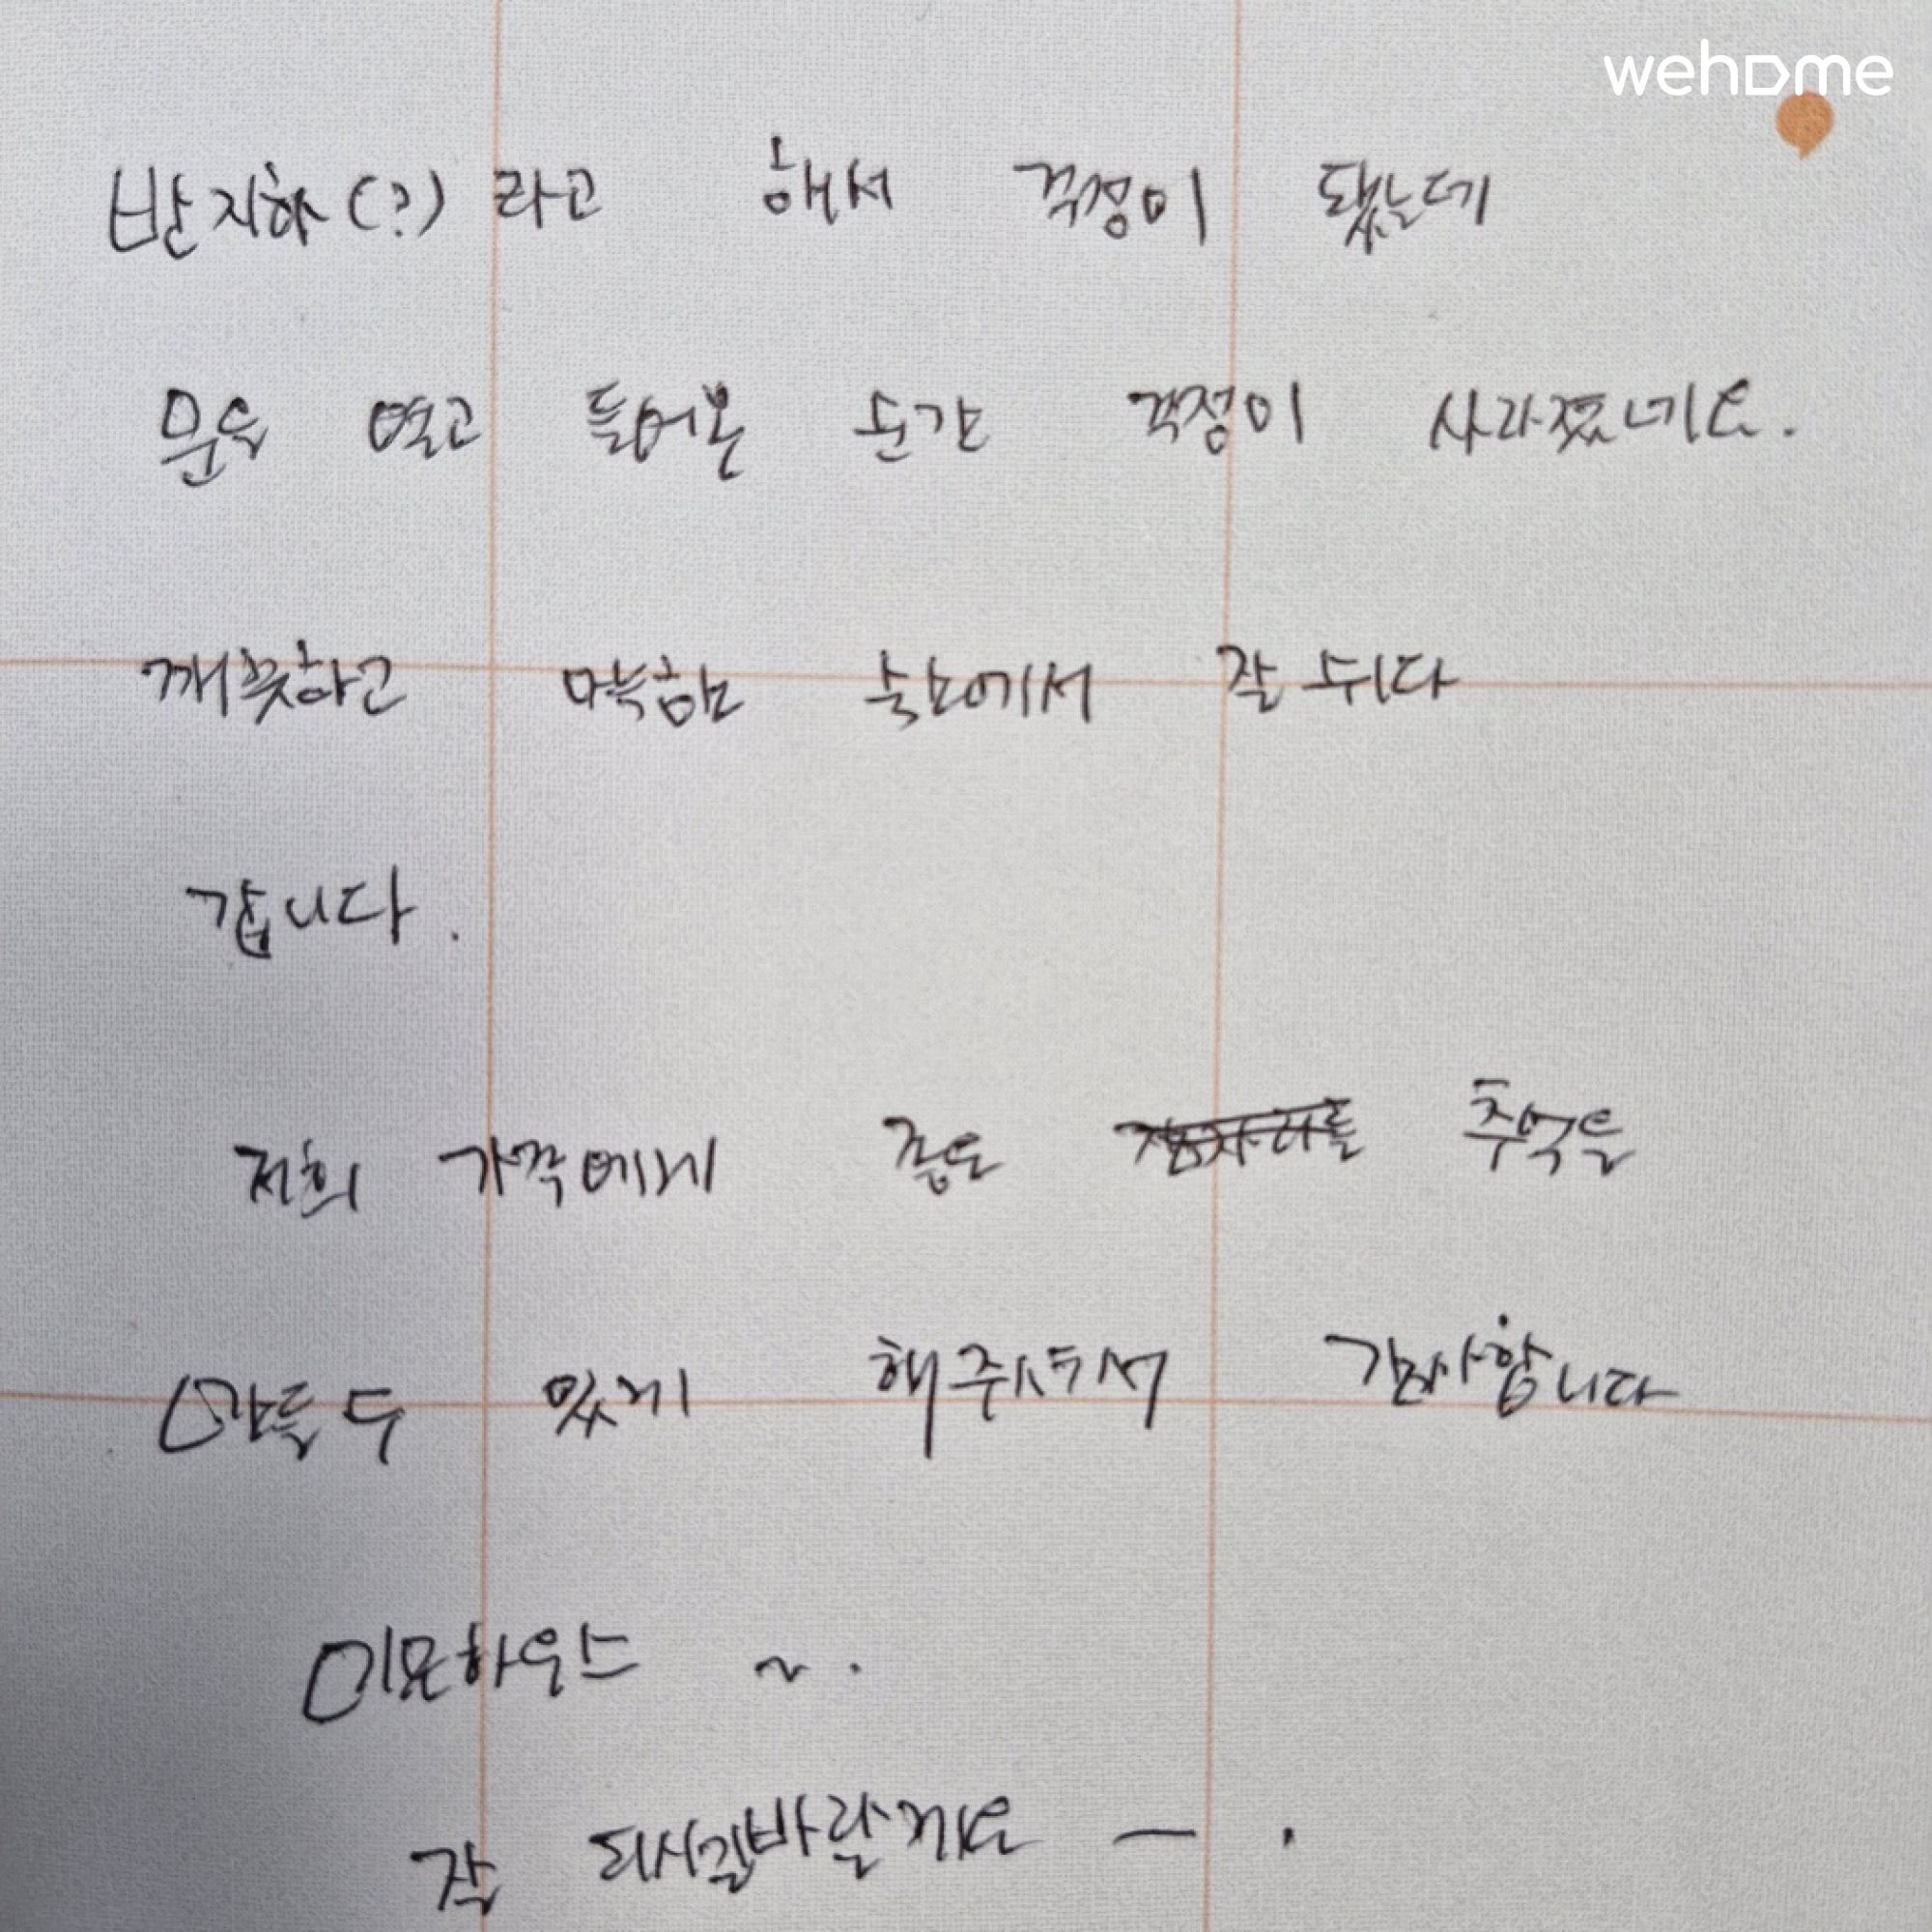 wehome
반지하(?)라고 해서 걱정이 됐는데
문을 열고 들어온 순간 걱정이 사라졌네요.
깨끗하고 아늑한 숙소에서 잘 쉬다
갑니다.
저희 가족에게 좋은 잠자리를 추억을
만들수 있게 해주셔서 감사합니다
이모하우스 ~.
잘 되시길바랄게요 ー.